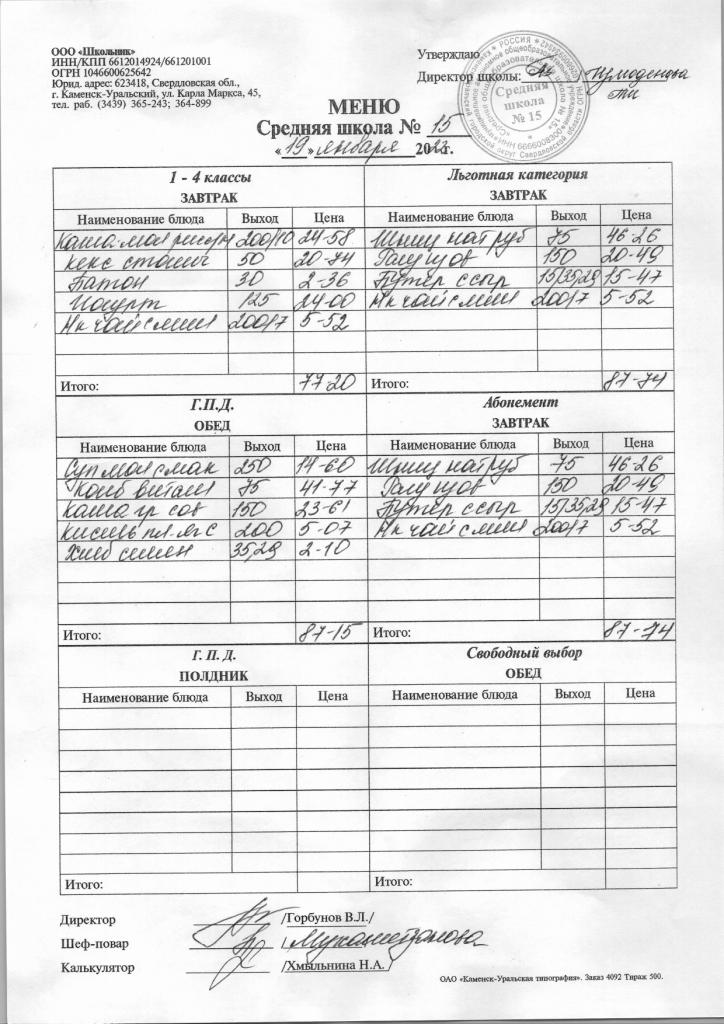 ООО «Школьник»
ИНН/КПП 6612014924/661201001
ОГРН 1046600625642
Юрид. адрес: 623418, Свердловская обл.,
г. Каменск-Уральский, ул. Карла Маркса, 45,
тел. раб. (3439) 365-243; 364-899
Утверждаю
Директор школы:
Средняя школа № 15
МЕНЮ
Средняя школа № 15
«19» января 2023г.
1 - 4 классы
ЗАВТРАК
Наименование блюда Выход Цена
Каша мол рисов 200/10 24-58
кекс столич 50 20-74
Батон 30 2-36
Йогурт 125 24-00
Нк чай слим 200/7 5-52
Итого: 77-20
Льготная категория
ЗАВТРАК
Наименование блюда Выход Цена
Шниц нат руб 75 46-26
Рагу цов 150 20-49
Бутер с сыр 15/35,29 15-47
Нк чай слим 200/7 5-52
Итого: 87-74
Г.П.Д.
ОБЕД
Наименование блюда Выход Цена
Суп мол с мак 250 14-60
Колб витам 75 41-77
каша гр 150 23-61
кисель пл. яг с 200 5-07
Хлеб 35,29 2-10
Итого: 87-15
Абонемент
ЗАВТРАК
Наименование блюда Выход Цена
Шниц нат руб 75 46-26
Рагу цов 150 20-49
Бутер с сыр 15/35,29 15-47
Нк чай слим 200/7 5-52
Итого: 87-74
Г. П. Д.
ПОЛДНИК
Наименование блюда Выход Цена
Итого:
Свободный выбор
ОБЕД
Наименование блюда Выход Цена
Итого:
Директор /Горбунов В.Л./
Шеф-повар
Калькулятор /Хмыльнина Н.А./
ОАО «Каменск-Уральская типография». Заказ 4092 Тираж 500.